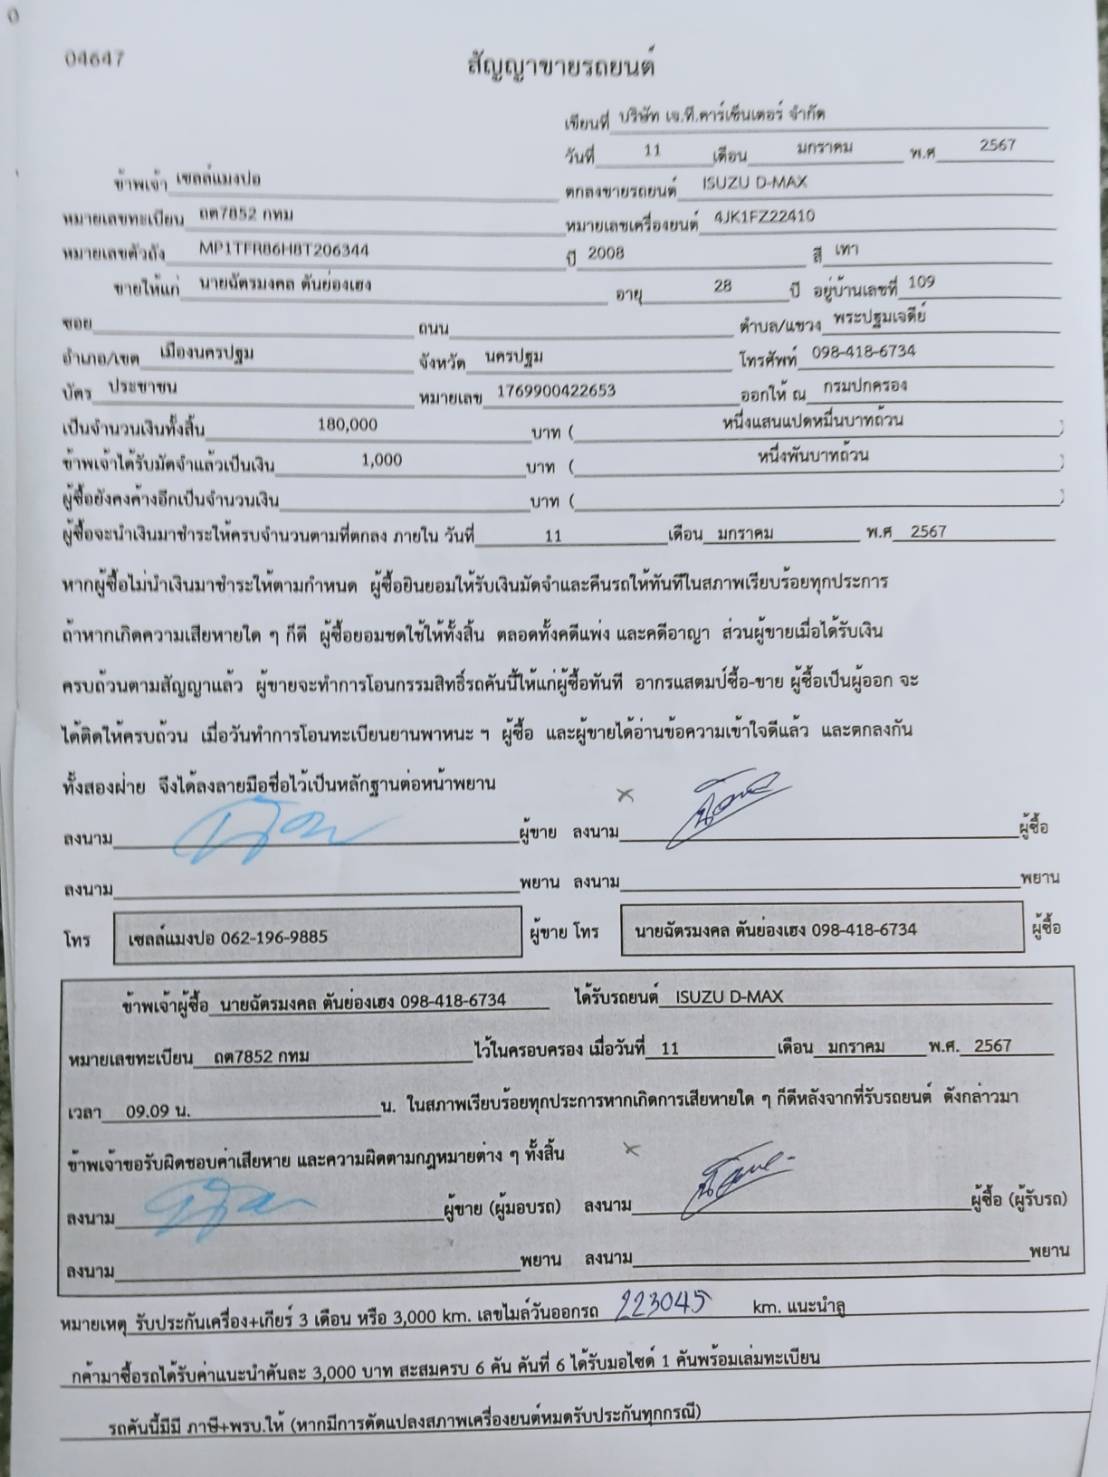 04647
สัญญาขายรถยนต์
เขียนที่ บริษัท เจ.ที.คาร์เซ็นเตอร์ จำกัด
วันที่ 11 เดือน มกราคม พ.ศ 2567
ข้าพเจ้า เซลล์แมงปอ ตกลงขายรถยนต์ ISUZU D-MAX
หมายเลขทะเบียน ถต7852 กทม หมายเลขเครื่องยนต์ 4JK1FZ22410
หมายเลขตัวถัง MP1TFR86H8T206344 ปี 2008 สี เทา
ขายให้แก่ นายฉัตรมงคล ตันย่องเฮง อายุ 28 ปี อยู่บ้านเลขที่ 109
ซอย ถนน ตำบล/แขวง พระปฐมเจดีย์
อำเภอ/เขต เมืองนครปฐม จังหวัด นครปฐม โทรศัพท์ 098-418-6734
บัตร ประชาชน หมายเลข 1769900422653 ออกให้ ณ กรมปกครอง
เป็นจำนวนเงินทั้งสิ้น 180,000 บาท ( หนึ่งแสนแปดหมื่นบาทถ้วน )
ข้าพเจ้าได้รับมัดจำแล้วเป็นเงิน 1,000 บาท ( หนึ่งพันบาทถ้วน )
ผู้ซื้อยังคงค้างอีกเป็นจำนวนเงิน บาท ( )
ผู้ซื้อจะนำเงินมาชำระให้ครบจำนวนตามที่ตกลง ภายใน วันที่ 11 เดือน มกราคม พ.ศ 2567
หากผู้ซื้อไม่นำเงินมาชำระให้ตามกำหนด ผู้ซื้อยินยอมให้รับเงินมัดจำและคืนรถให้ทันทีในสภาพเรียบร้อยทุกประการ
ถ้าหากเกิดความเสียหายใด ๆ ก็ดี ผู้ซื้อยอมชดใช้ให้ทั้งสิ้น ตลอดทั้งคดีแพ่ง และคดีอาญา ส่วนผู้ขายเมื่อได้รับเงิน
ครบถ้วนตามสัญญาแล้ว ผู้ขายจะทำการโอนกรรมสิทธิ์รถคันนี้ให้แก่ผู้ซื้อทันที อากรแสตมป์ซื้อ-ขาย ผู้ซื้อเป็นผู้ออก จะ
ได้ติดให้ครบถ้วน เมื่อวันทำการโอนทะเบียนยานพาหนะ ฯ ผู้ซื้อ และผู้ขายได้อ่านข้อความเข้าใจดีแล้ว และตกลงกัน
ทั้งสองฝ่าย จึงได้ลงลายมือชื่อไว้เป็นหลักฐานต่อหน้าพยาน
ลงนาม ผู้ขาย ลงนาม ผู้ซื้อ
ลงนาม พยาน ลงนาม พยาน
โทร เซลล์แมงปอ 062-196-9885 ผู้ขาย โทร นายฉัตรมงคล ตันย่องเฮง 098-418-6734 ผู้ซื้อ
ข้าพเจ้าผู้ซื้อ นายฉัตรมงคล ตันย่องเฮง 098-418-6734 ได้รับรถยนต์ ISUZU D-MAX
หมายเลขทะเบียน ถต7852 กทม ไว้ในครอบครอง เมื่อวันที่ 11 เดือน มกราคม พ.ศ. 2567
เวลา 09.09 น. น. ในสภาพเรียบร้อยทุกประการหากเกิดการเสียหายใด ๆ ก็ดีหลังจากที่รับรถยนต์ ดังกล่าวมา
ข้าพเจ้าขอรับผิดชอบค่าเสียหาย และความผิดตามกฎหมายต่าง ๆ ทั้งสิ้น
ลงนาม ผู้ขาย (ผู้มอบรถ) ลงนาม ผู้ซื้อ (ผู้รับรถ)
ลงนาม พยาน ลงนาม พยาน
หมายเหตุ รับประกันเครื่อง+เกียร์ 3 เดือน หรือ 3,000 km. เลขไมล์วันออกรถ 223045 km. แนะนำลู
กค้ามาซื้อรถได้รับค่าแนะนำคันละ 3,000 บาท สะสมครบ 6 คัน คันที่ 6 ได้รับมอไซด์ 1 คันพร้อมเล่มทะเบียน
รถคันนี้มีมี ภาษี+พรบ.ให้ (หากมีการดัดแปลงสภาพเครื่องยนต์หมดรับประกันทุกกรณี)